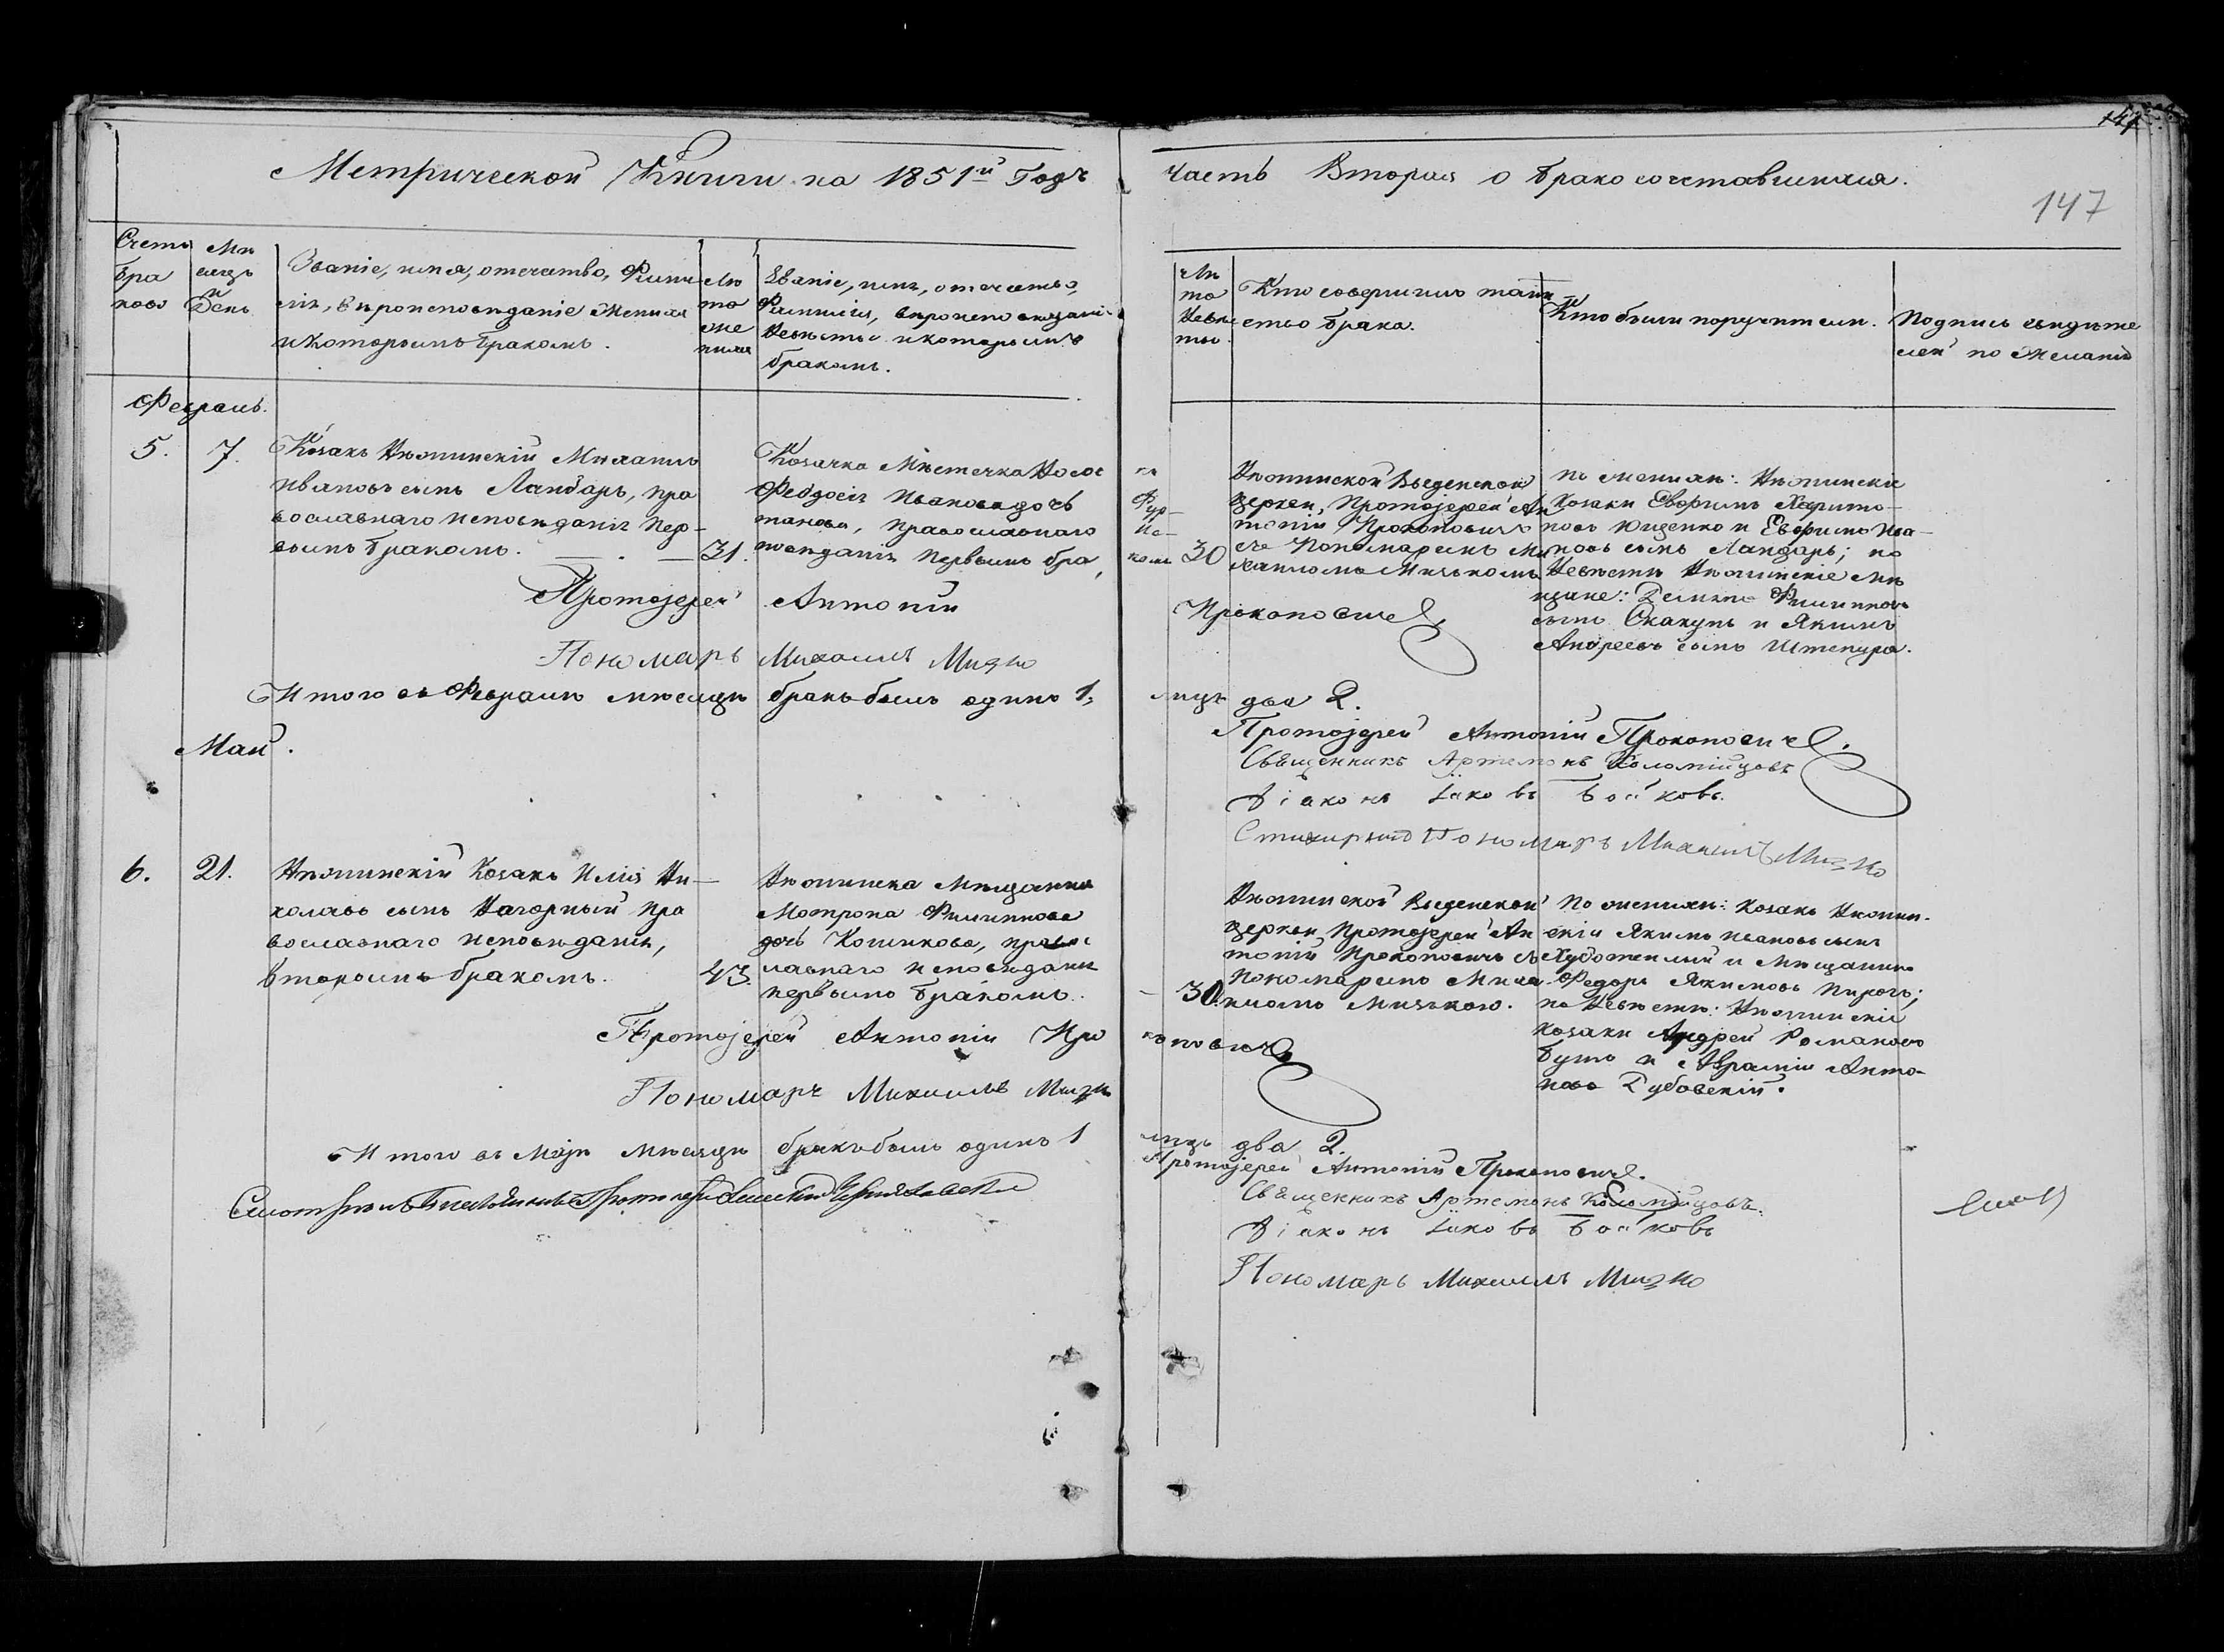 147
Метрической Книги на 1851й Годъ
часть Вторая о бракосочетавшихся.
147
Счетъ
бра
ковъ
Мѣ
сяцъ
и
День
Званіе, имя, отечество, Фами
лія, вѣроисповѣданіе Жениха
и Которымъ бракомъ.
Лѣ
та
Же
ниха
Званіе, имя, отечество,
Фамилія, вѣроисповѣдані
Невѣсты и которымъ
бракомъ.
Лѣ
та
Невѣ
сты.
Кто совершилъ таин
ство брака.
Кто были поручители.
Подпись свидѣте
лей по желанію
Февраль.
5.
7.
Козакъ Нѣжинскій Михаилъ
Ивановъ сынъ Ландарь, пра
вославнаго исповѣданія пер-
вымъ бракомъ.
31.
Козачка Мѣстечка Носов
Феодосія Иванова дочь
танова, православнаго
повѣданія первымъ бра
ки
Фур-
ис-
комъ
30
Нѣжинской Введенской
церкви, Протоіерей Ан
тоній Прокоповичъ
съ Пономаремъ Ми
хаиломъ Мизькомъ
по женихѣ: Нѣжинскіе
Козаки Евфимъ Харито-
новъ Ющенко и Евфимъ Ива-
новъ сынъ Ландарь; по
Невѣстѣ Нѣжинскіе мѣ
щане: Демьянъ Филиповъ
сынъ Скакунъ и Якимъ
Андреевъ сынъ Штепура.
Протоіерей Антоній Прокоповичъ
Пономарь Михаилъ Мизко
Итого въ Февралѣ мѣсяцѣ бракъ былъ одинъ 1, лицъ два 2.
Протоіерей Антоній Прокоповичъ.
Священникъ Артемонъ Коломійцовъ
Діаконъ Іаковъ Бойковъ.
Стихарный Пономарь Михаилъ Мизко
Май.
6.
21.
Нѣжинскій Козакъ Илія Ни-
колаевъ сынъ Нагорный пра
вославнаго исповѣданія,
вторымъ бракомъ.
43.
Нѣжинска мѣщанка
Мотрона Филиппова
дочь Кошикова, правос
лавнаго исповѣданія
первымъ бракомъ.
30.
Нѣжинской Введенской
церкви Протоіерей Ан
тоній Прокоповичъ съ
Пономаремъ Миха
иломъ Мизькою.
По женихѣ: Козакъ Нѣжин-
скій Якимъ Ивановъ сынъ
Художилый и Мѣщанинъ
Федоръ Якимовъ Пирогъ;
по Невѣстѣ: Нѣжинскіе
козаки Андрей Романовъ
Буто и Аврамій Анто-
новъ Дубовскій.
Протоіерей Антоній Прокоповичъ
Пономарь Михаилъ Мизко
Итого въ Маіѣ мѣсяцѣ бракъ былъ одинъ 1 лицъ два 2.
Протоіерей Антоній Прокоповичъ.
Священникъ Артемонъ Коломійцовъ.
Діаконъ Іаковъ Бойковъ
Пономарь Михаилъ Мизко
Смотрѣлъ